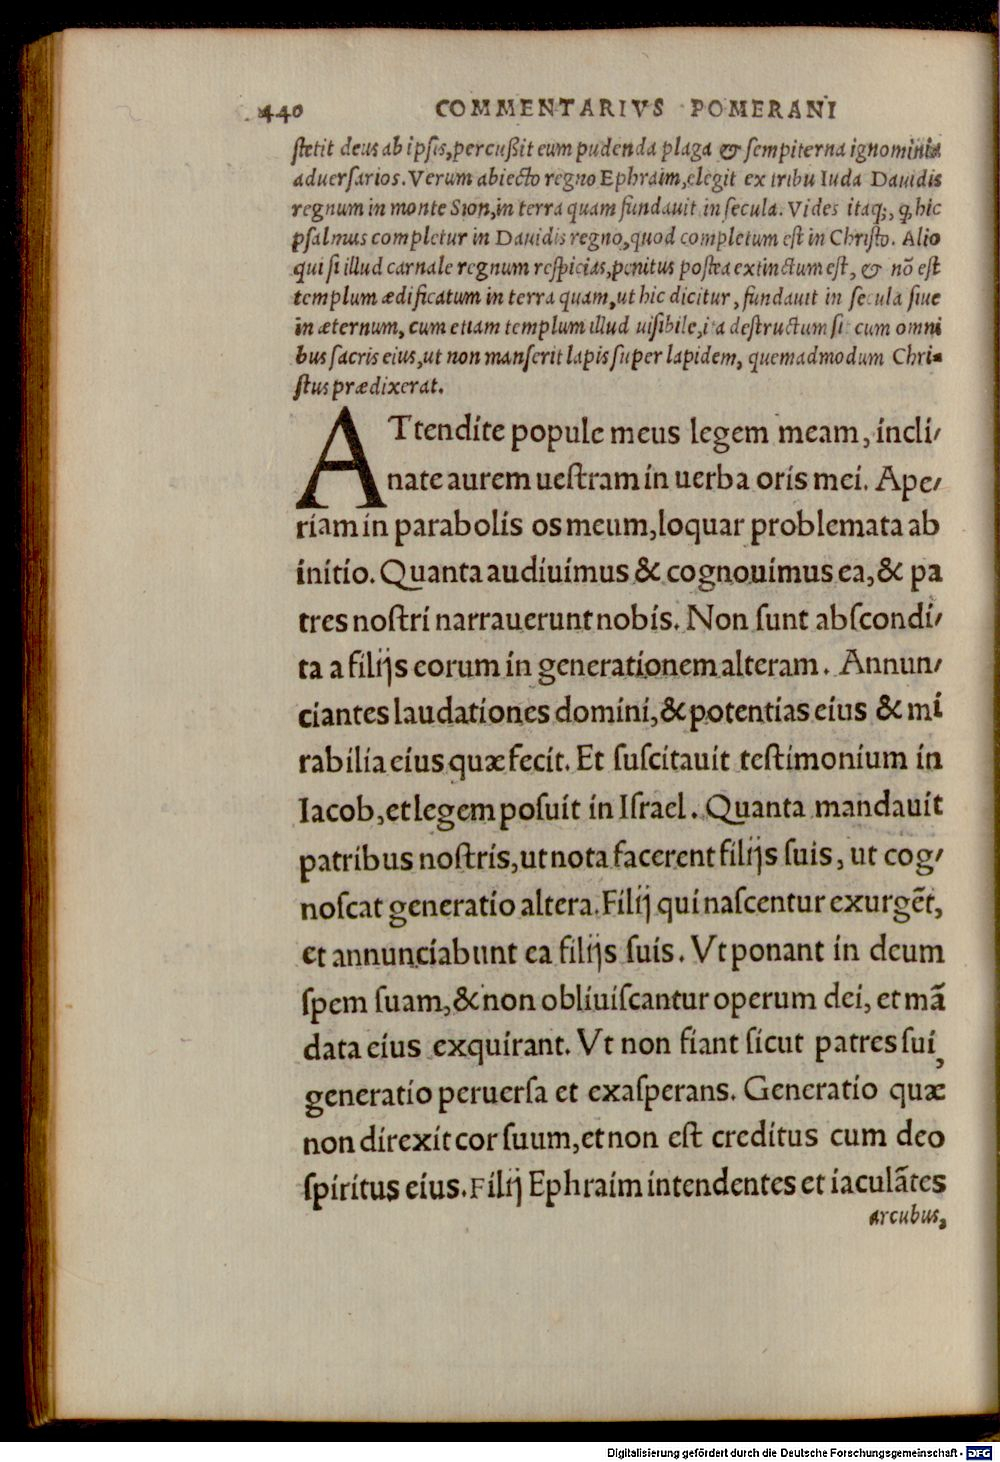 440 COMMENTARIVS POMERANI
ſtetit deus ab ipſis, percußit eum pudenda plaga & ſempiterna ignominia
aduerſarios. Verum abiecto regno Ephraim, elegit ex tribu Iuda Dauidis
regnum in monte Sion, in terra quam fundauit in ſecula. Vides itaq;, q̃ hic
pſalmus completur in Dauidis regno, quod completum eſt in Chriſto. Alio
qui ſi illud carnale regnum reſpicias, penitus poſtea extinctum eſt, & nō eſt
templum ædificatum in terra quam, ut hic dicitur, fundauit in ſecula ſiue
in æternum, cum etiam templum illud uiſibile, ita deſtructum ſit cum omni
bus ſacris eius, ut non manſerit lapis ſuper lapidem, quemadmodum Chri-
ſtus prædixerat.
ATtendite popule meus legem meam, incli/
nate aurem ueſtram in uerba oris mei. Ape/
riam in parabolis os meum, loquar problemata ab
initio. Quanta audiuimus & cognouimus ea, & pa
tres noſtri narrauerunt nobis. Non ſunt abſcondi/
ta a filijs eorum in generationem alteram. Annun/
ciantes laudationes domini, & potentias eius & mi
rabilia eius quæ fecit. Et ſuſcitauit teſtimonium in
Iacob, et legem poſuit in Iſrael. Quanta mandauit
patribus noſtris, ut nota facerent filijs ſuis, ut cog/
noſcat generatio altera. Filij qui naſcentur exurgēt,
et annunciabunt ea filijs ſuis. Vt ponant in deum
ſpem ſuam, & non obliuiſcantur operum dei, et mā
data eius exquirant. Vt non fiant ſicut patres ſui,
generatio peruerſa et exaſperans. Generatio quæ
non direxit cor ſuum, et non eſt creditus cum deo
ſpiritus eius. Filij Ephraim intendentes et iaculātes
arcubus,
Digitalisierung gefördert durch die Deutsche Forschungsgemeinschaft - DFG